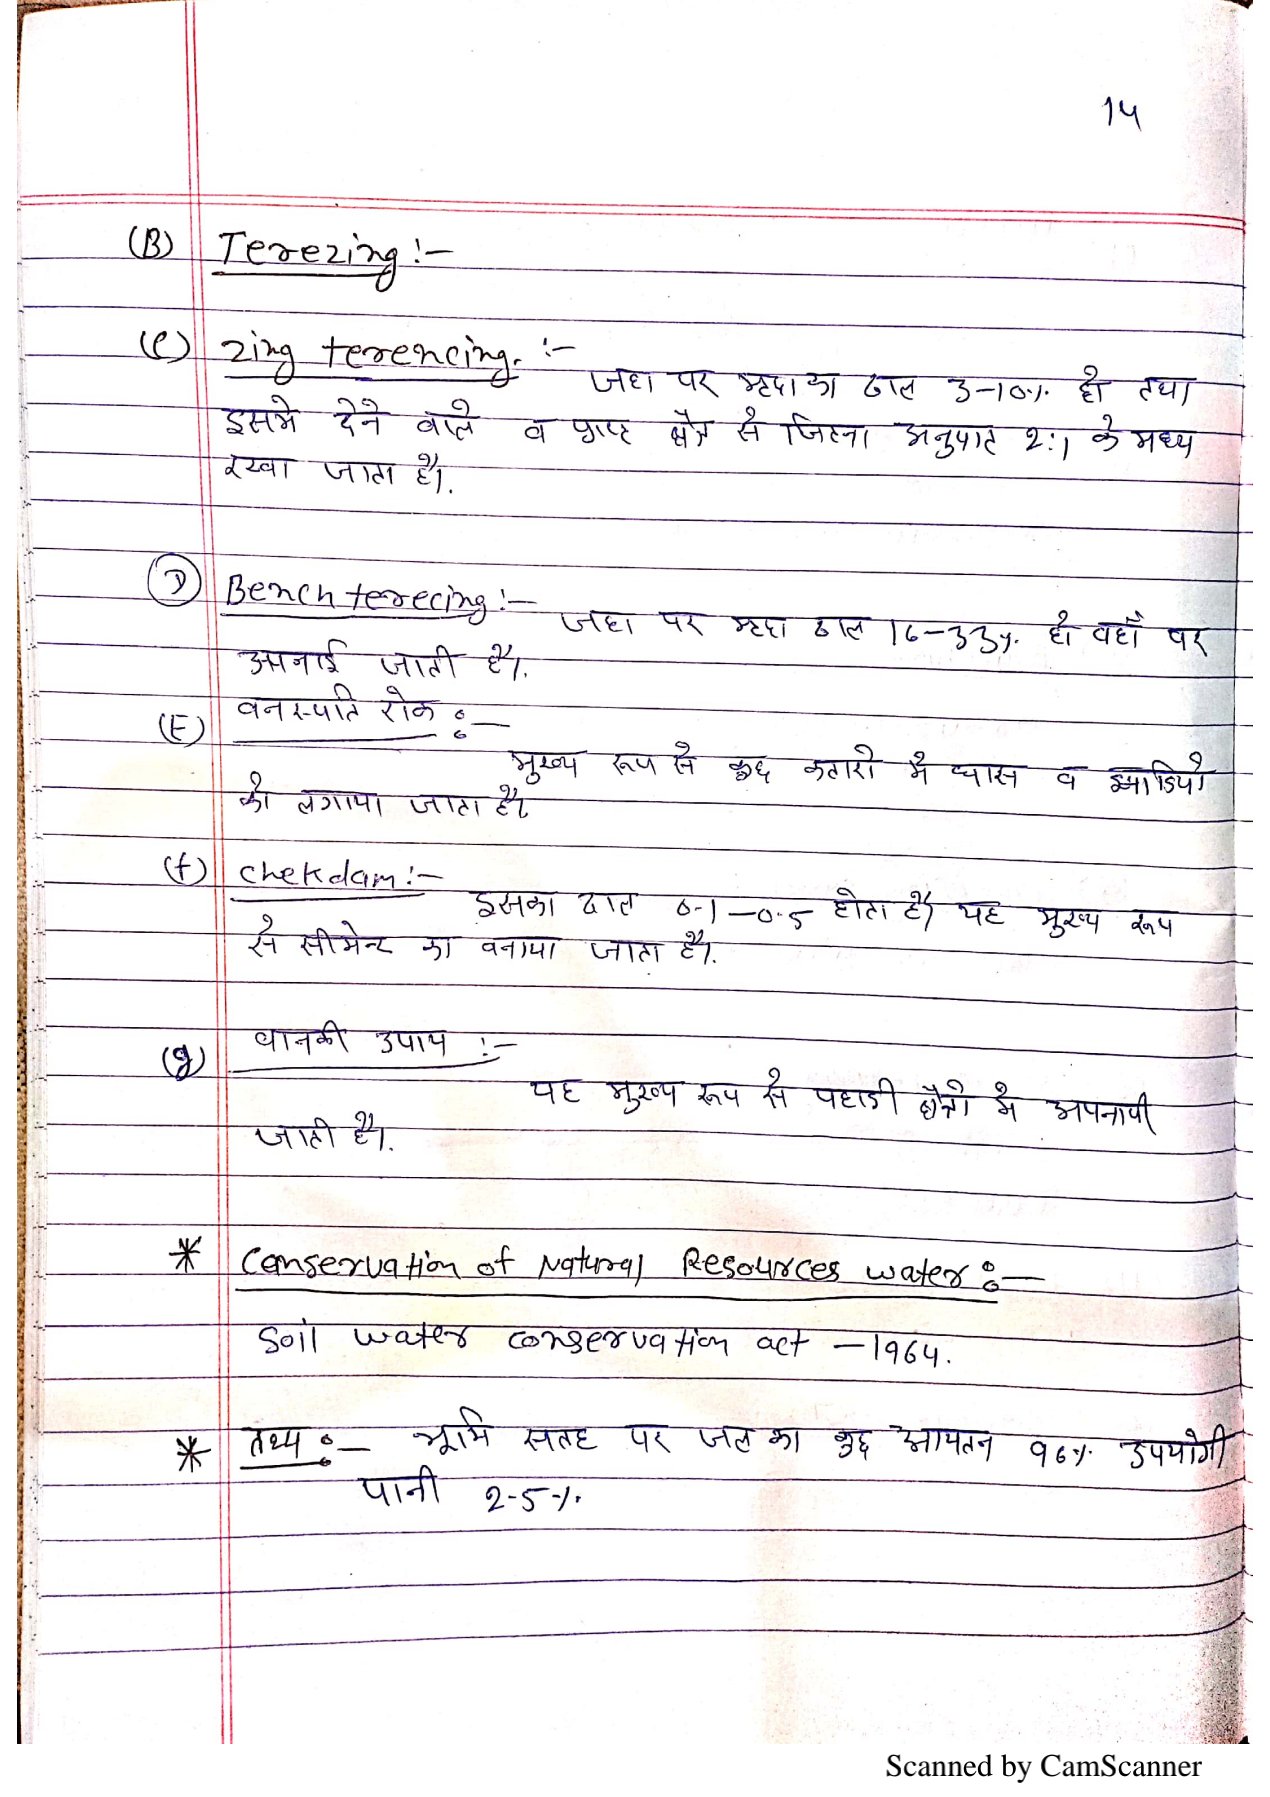 14
(B) Terezing :-
(C) Zing terencing. :-
जहा पर मृदा का ढाल 3-10% हो तथा
इसमे देने वाले व प्राप्त क्षेत्र से जितना अनुपात 2:1 के मध्य
रखा जाता है।.
(D) Bench terecing :- जहा पर मृदा ढाल 16-33% हो वहाँ पर
अपनाई जाती है।.
(E) वनस्पति रोक :-
मुख्य रूप से कुछ कतारो मे घास व झाडियो
को लगाया जाता है।
(f) Chekdam :- इसका ढाल 0.1-0.5 होता है। यह मुख्य रूप
से सीमेन्ट का बनाया जाता है।.
(g) वानकी उपाय :-
यह मुख्य रूप से पहाडी क्षेत्रो मे अपनायी
जाती है।.
* Conservation of Natural Resources water :-
Soil water conservation act - 1964.
* तथ्य :- भूमि सतह पर जल का कुछ आयतन 96% उपयोगी
पानी 2.5%.
Scanned by CamScanner